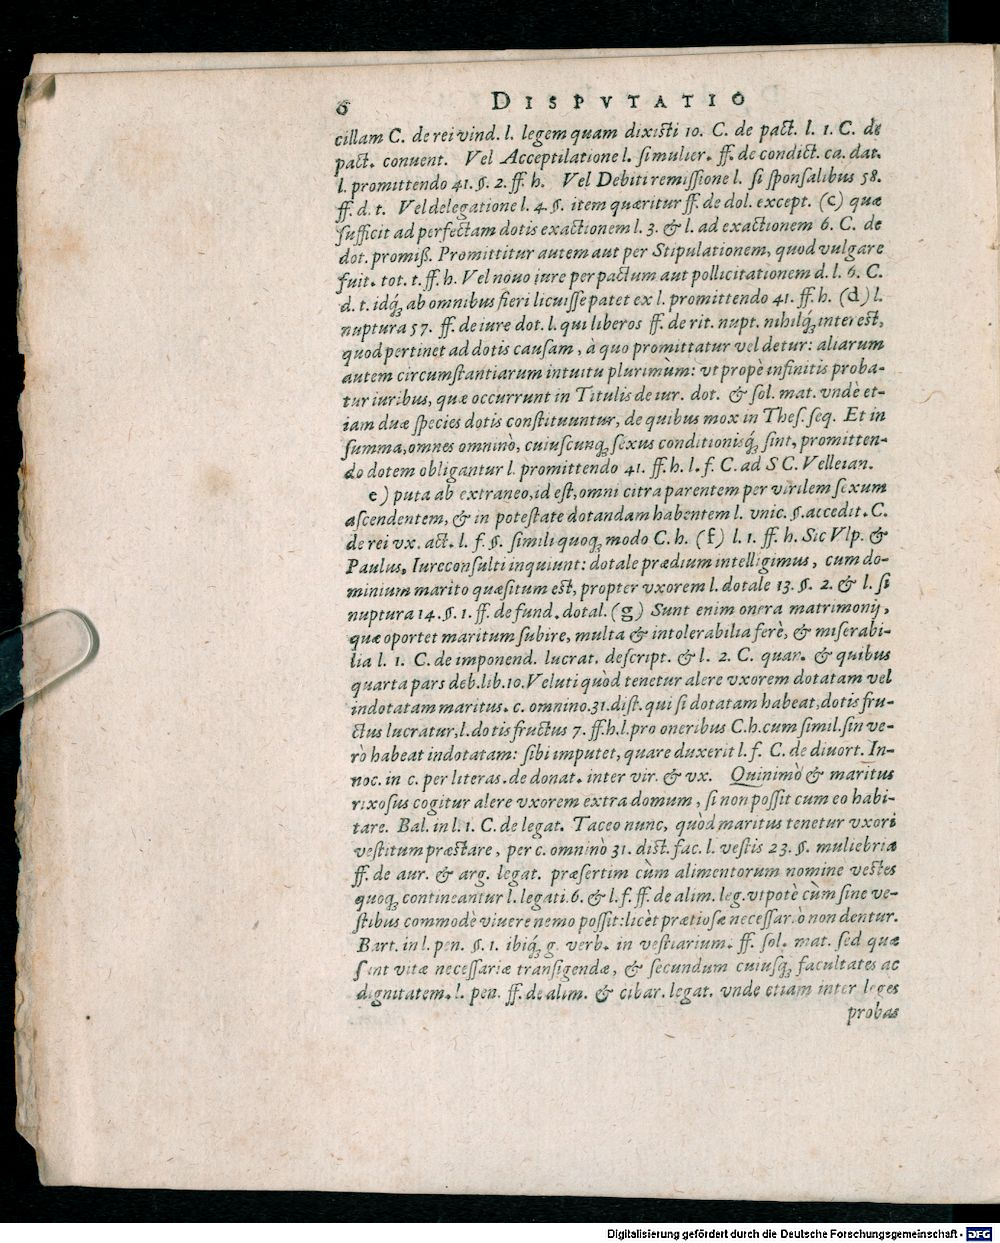 6 DISPVTATIO
cillam C. de rei vind. l. legem quam dixisti 10. C. de pact. l. 1. C. de
pact. conuent. Vel Acceptilatione l. si mulier. ff. de condict. ca. dat.
l. promittendo 41. §. 2. ff. h. Vel Debiti remissione l. si sponsalibus 58.
ff. d. t. Vel delegatione l. 4. §. item quæritur ff. de dol. except. (c) quæ
sufficit ad perfectam dotis exactionem l. 3. & l. ad exactionem 6. C. de
dot. promiß. Promittitur autem aut per Stipulationem, quod vulgare
fuit. tot. t. ff. h. Vel nouo iure per pactum aut pollicitationem d. l. 6. C.
d. t. idq́; ab omnibus fieri licuisse patet ex l. promittendo 41. ff. h. (d) l.
nuptura 57. ff. de iure dot. l. qui liberos ff. de rit. nupt. nihilq́; interest,
quod pertinet ad dotis causam, à quo promittatur vel detur: aliarum
autem circumstantiarum intuitu plurimùm: vt propè infinitis proba-
tur iuribus, quæ occurrunt in Titulis de iur. dot. & sol. mat. vndè et-
iam duæ species dotis constituuntur, de quibus mox in Thes. seq. Et in
summa, omnes omninò, cuiuscunq; sexus conditionisq́; sint, promitten-
do dotem obligantur l. promittendo 41. ff. h. l. f. C. ad SC. Velleian.
e) puta ab extraneo, id est, omni citra parentem per virilem sexum
ascendentem, & in potestate dotandam habentem l. vnic. §. accedit. C.
de rei vx. act. l. f. §. simili quoq; modo C. h. (f) l. 1. ff. h. Sic Vlp. &
Paulus, Iureconsulti inquiunt: dotale prædium intelligimus, cum do-
minium marito quæsitum est, propter vxorem l. dotale 13. §. 2. & l. si
nuptura 14. §. 1. ff. de fund. dotal. (g) Sunt enim onera matrimonij,
quæ oportet maritum subire, multa & intolerabilia ferè, & miserabi-
lia l. 1. C. de imponend. lucrat. descript. & l. 2. C. quan. & quibus
quarta pars deb. lib. 10. Veluti quod tenetur alere vxorem dotatam vel
indotatam maritus. c. omnino. 31. dist. qui si dotatam habeat, dotis fru-
ctus lucratur, l. dotis fructus 7. ff. h. l. pro oneribus C. h. cum simil. sin ve-
rò habeat indotatam: sibi imputet, quare duxerit l. f. C. de diuort. In-
noc. in c. per literas. de donat. inter vir. & vx. Quinimò & maritus
rixosus cogitur alere vxorem extra domum, si non possit cum eo habi-
tare. Bal. in l. 1. C. de legat. Taceo nunc, quòd maritus tenetur vxori
vestitum præstare, per c. omninò 31. dist. fac. l. vestis 23. §. muliebria
ff. de aur. & arg. legat. præsertim cùm alimentorum nomine vestes
quoq; contineantur l. legati. 6. & l. f. ff. de alim. leg. vtpotè cùm sine ve-
stibus commodè viuere nemo possit: licèt prætiosæ necessariò non dentur.
Bart. in l. pen. §. 1. ibiq́; g. verb. in vestiarium. ff. sol. mat. sed quæ
sint vitæ necessariæ transigendæ, & secundum cuiusq; facultates ac
dignitatem. l. pen. ff. de alim. & cibar. legat. vnde etiam inter leges
probas
Digitalisierung gefördert durch die Deutsche Forschungsgemeinschaft - DFG